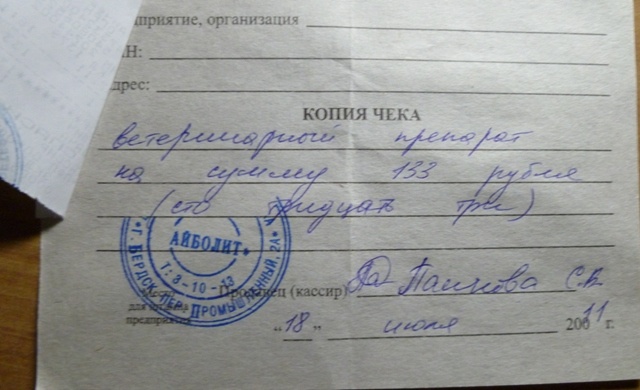 дприятие, организация
Н:
дрес:
КОПИЯ ЧЕКА
ветеринарный препарат
на сумму 133 рубля
(сто тридцать три)
АЙБОЛИТ
*г. БЕРДСК, ПЕР. ПРОМЫШЛЕННЫЙ, 2А*
Продавец (кассир)
С.В.
предприятия
"18" июля 2011 г.